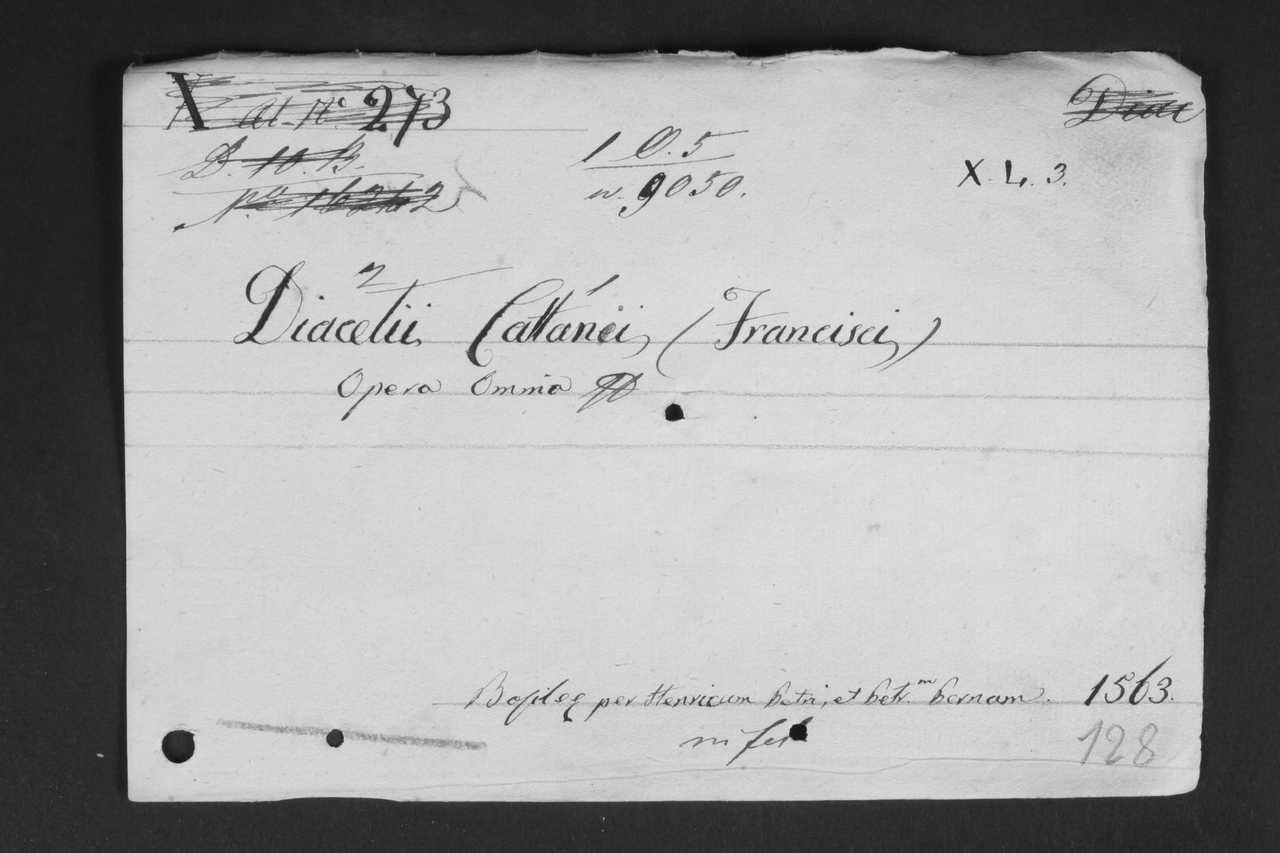 X At. Nº 273
Diac
D. 10. B.
1 O. 5
X. L. 3.
Nº 16242
n. 9050.
2 1
Diacetii Cattanei, (Francisci)
Opera Omnia
Basileę per Henricum Petri, et Petr.m Pernam. 1563.
in fol
128